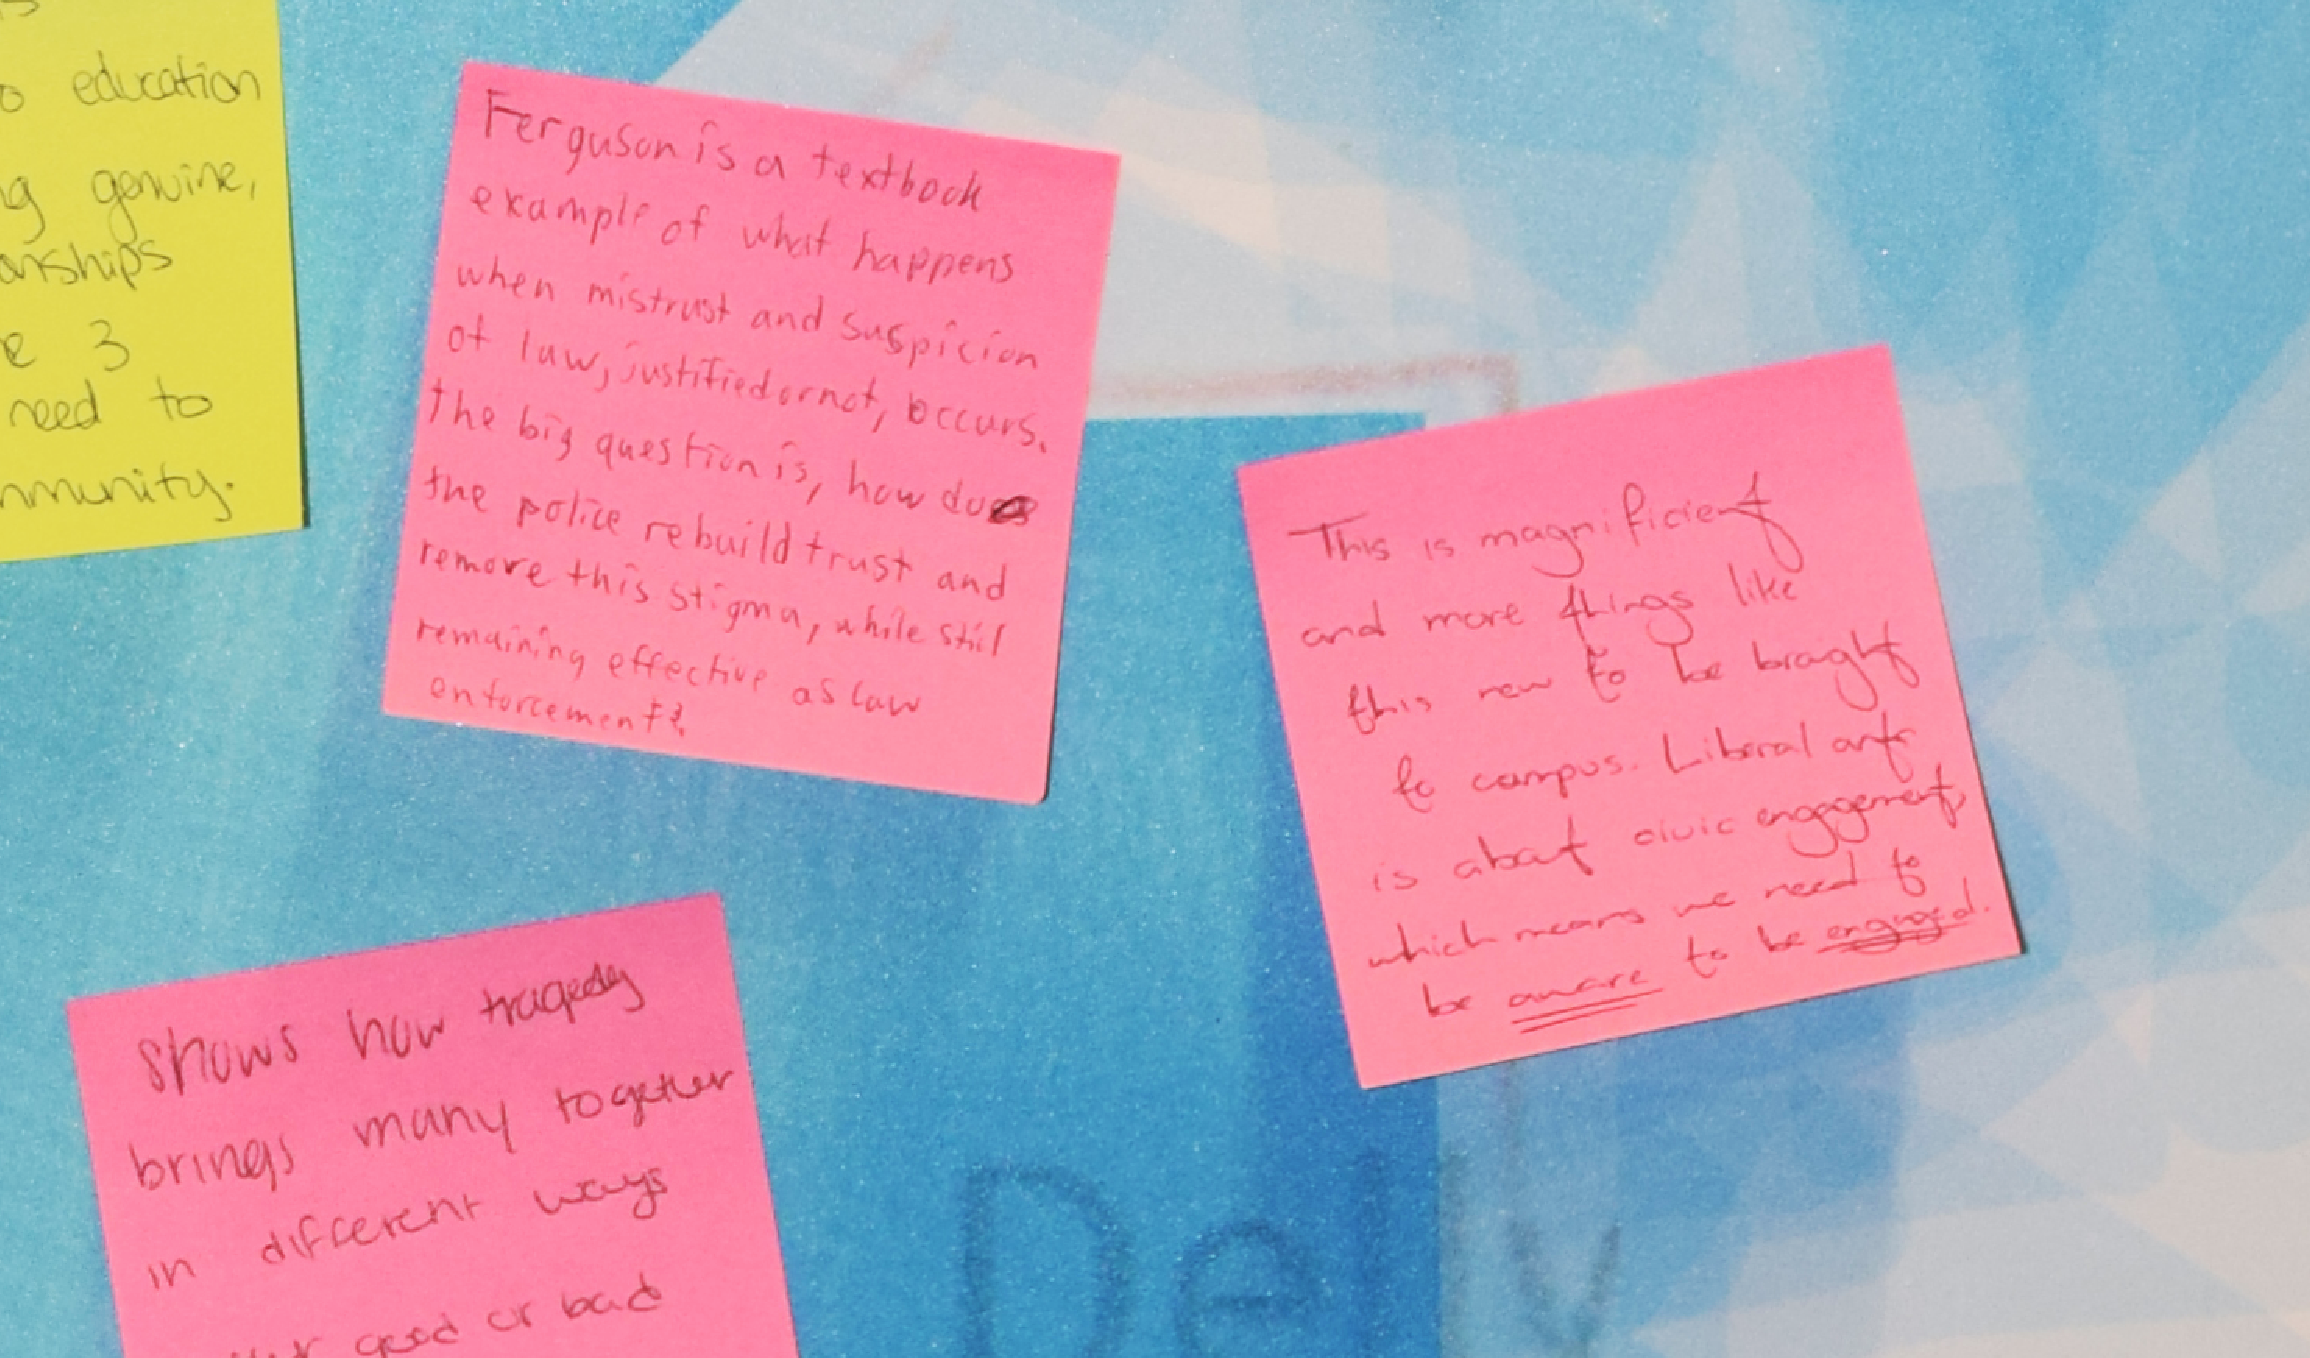 o education
genuine,
onships
3
need to
mmunity.
Ferguson is a textbook
example of what happens
when mistrust and suspicion
of law, justified or not, occurs.
The big question is, how do
the police rebuild trust and
remove this stigma, while still
remaining effective as law
enforcement?
This is magnificient
and more things like
this new to be braight
to campus. Liberal arts
is about civic engagement,
which means we need to
be aware to be engaged.
shows how tragedy
brings many together
in different ways
good or bad